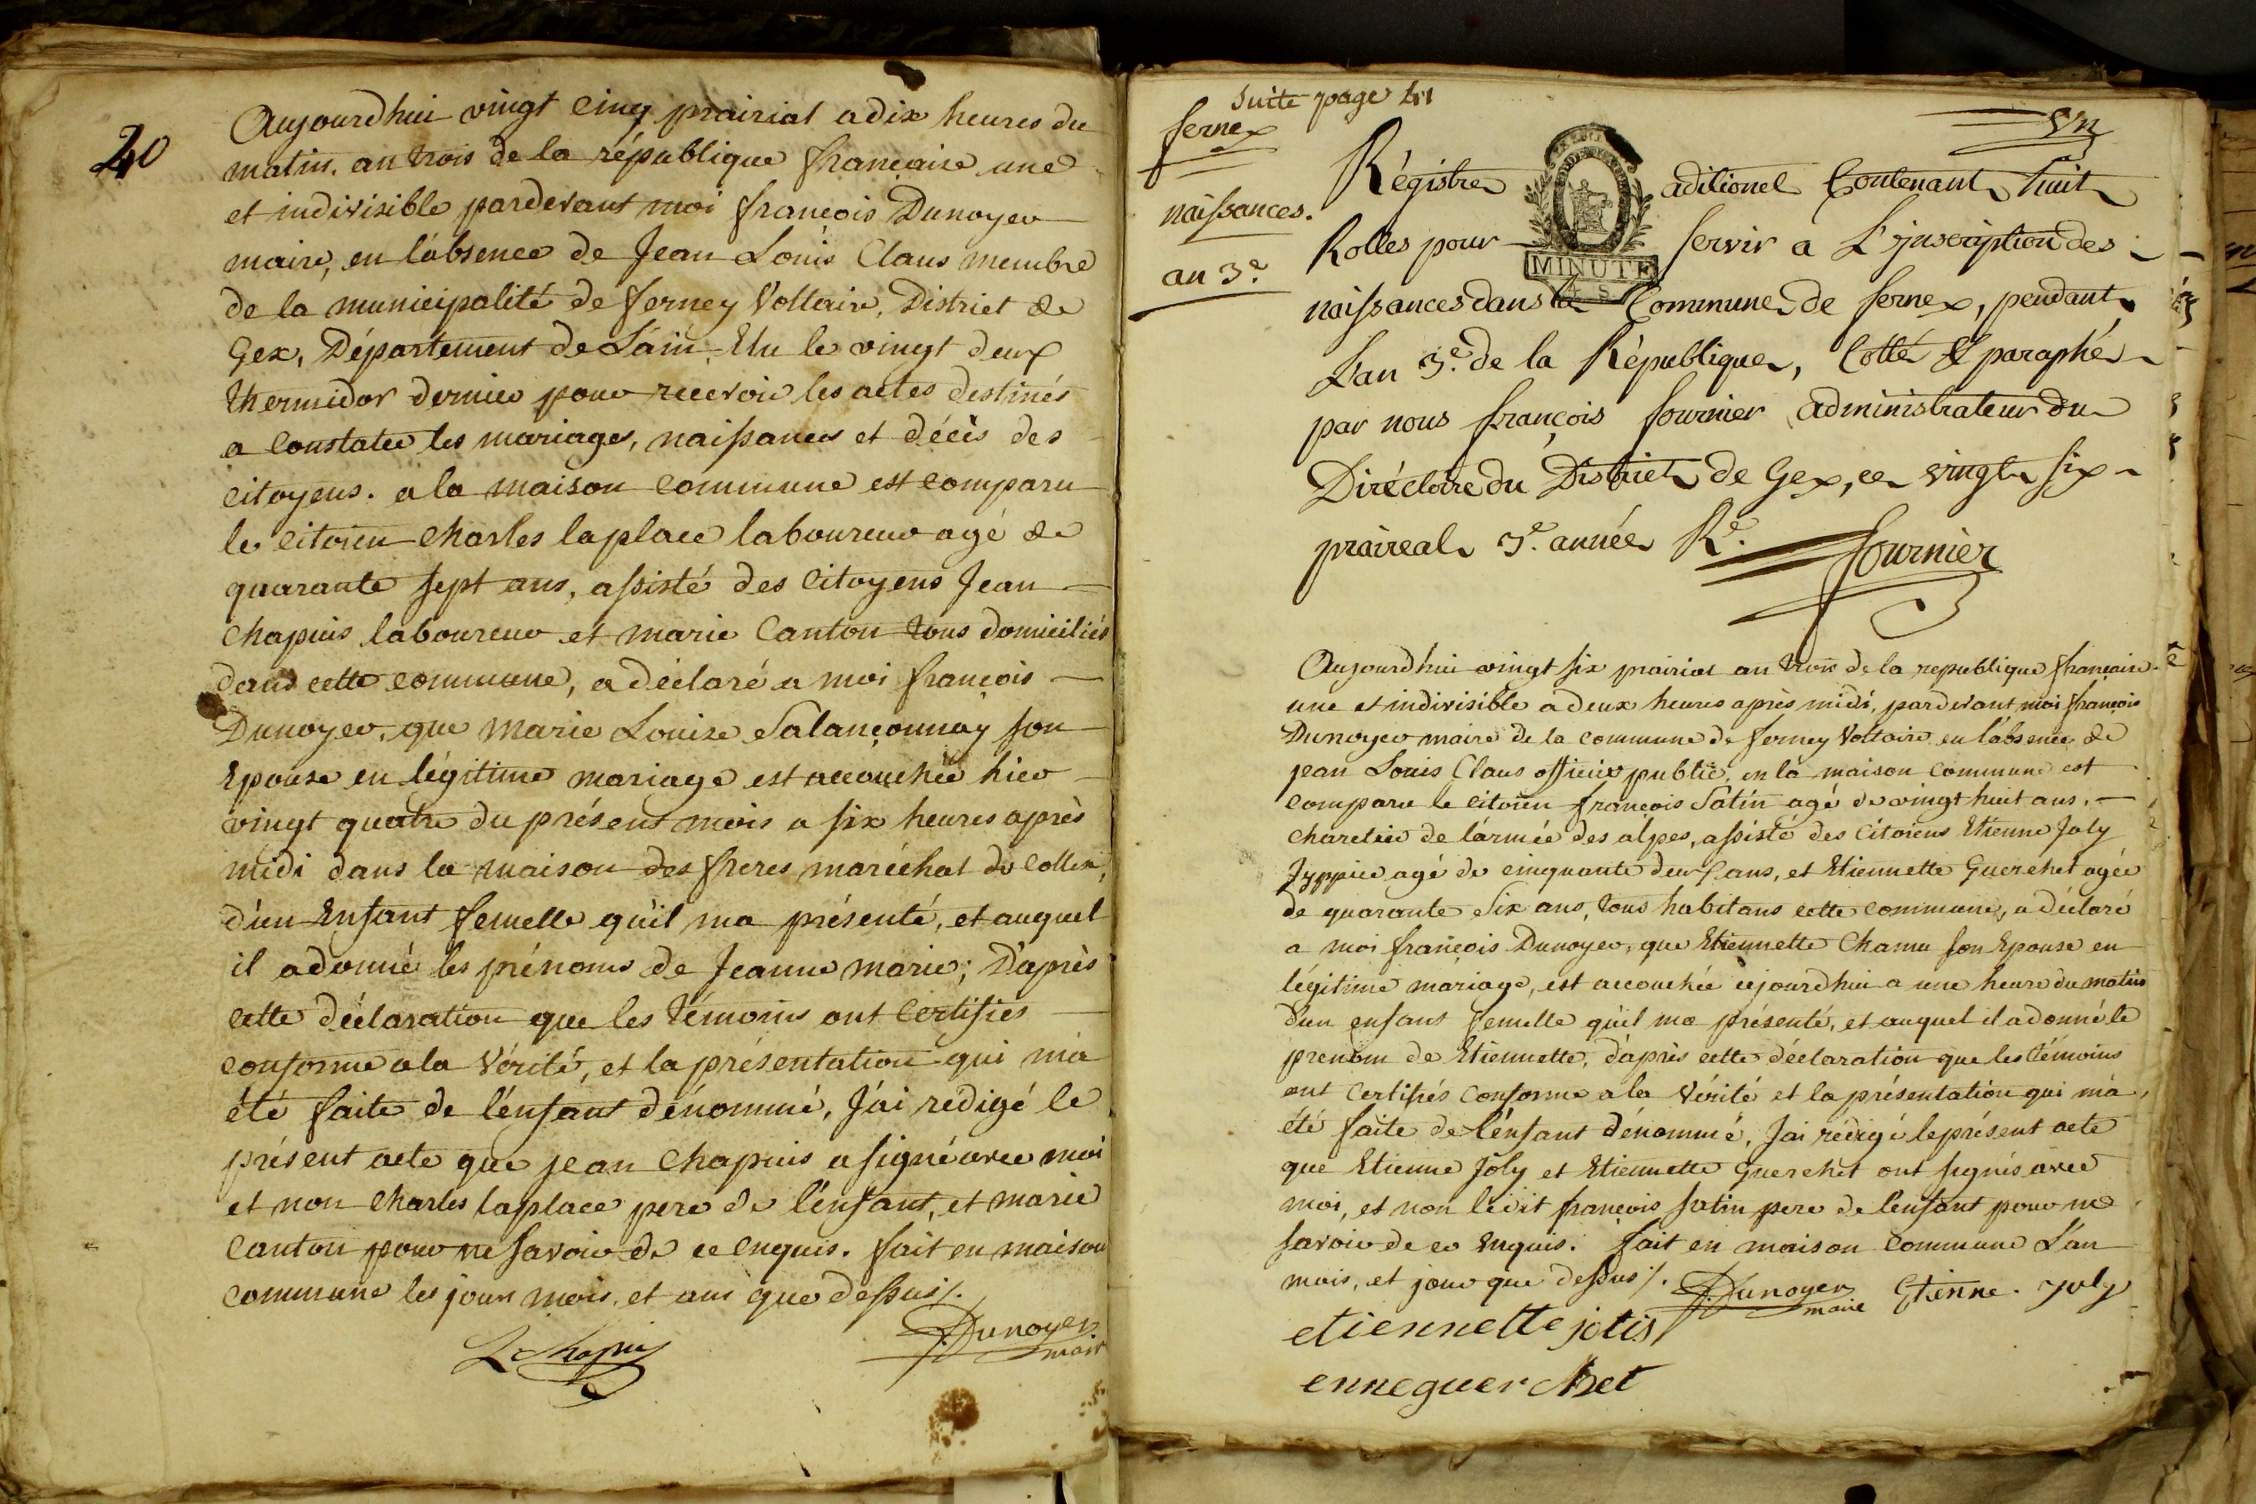 40
Aujourdhui vingt cinq prairial a dix heures du
matin, an trois de la république française une
et indivisible pardevant moi françois Dunoyer
maire, en l'absence de Jean Louis Claus membre
de la municipalité de ferney Voltaire, District de
Gex, Département de L'ain, Elu le vingt deux
thermidor dernier pour recevoir les actes destinés
a Constater les mariages, naissances et décès des
citoyens. a la maison commune est comparu
le citoien Charles laplace laboureur agé de
quarante sept ans, assisté des citoyens Jean
Chapuis laboureur et marie Canton tous domiciliés
dans cette commune, a déclaré a moi françois
Dunoyer, que Marie Louise Salançonnay son
Epouse en légitime mariage est accouchée hier
vingt quatre du présent mois a six heures après
midi dans la maison des freres maréchal de Collex,
d'un Enfant femelle qu'il ma présenté, et auquel
il a donné les prénoms de Jeanne marie; D'après
cette déclaration que les témoins ont Certifiés
conforme a la Vérité, et la présentation qui m'a
été faite de l'enfant dénommé, J'ai rédigé le
présent acte que jean Chapuis a signé avec moi
et non Charles laplace pere de l'enfant, et marie
Canton pour ne savoir de ce enquis. fait en maison
commune les jour mois, et an que dessus /.
Chapuis Dunoyer
maire
Suite page 41
fernex
naissances.
an 3.e
un
Régistre aditionel Contenant huit
Rolles pour servir a L'inscription des
MINUTE
naissances dans la Commune de fernex, pendant
L'an 3.e de la République, Cotté & paraphé
par nous françois fournier administrateur du
Diréctoire du District de Gex, ce vingt six
praireal 3.e année Re.
fournier
Aujourdhui vingt six prairial an trois de la republique française
une et indivisible a deux heures après midi, pardevant moi françois
Dunoyer maire de la commune de ferney Voltaire en l'absence de
jean Louis Claus officier public, en la maison commune est
comparu le citoien françois Satin agé de vingt huit ans,
charetier de l'armée des alpes, assisté des Citoiens Etienne Joly
Jyppier agé de cinquante deux ans, et Etiennette Guerchet agée
de quarante Six ans, tous habitans cette commune, a déclaré
a moi françois Dunoyer, que Etiennette Chamu son Epouse en
légitime mariage, est accouchée cejourdhui a une heure du matin
d'un enfant femelle qu'il ma présenté, et auquel il a donné le
prenom de Etiennette, d'après cette déclaration que les témoins
ont Certifiés Conforme a la Vérité et la présentation qui m'a
été faite de l'enfant dénommé, J'ai rédigé le présent acte
que Etienne Joly et Etiennette Guerchet ont signés avec
moi, et non ledit françois Satin pere de l'enfant pour ne
savoir de ce Enquis. fait en maison commune L'an
mois, et jour que dessus /. Dunoyer maire Etienne. joly
etiennette jotis
enneguerchet